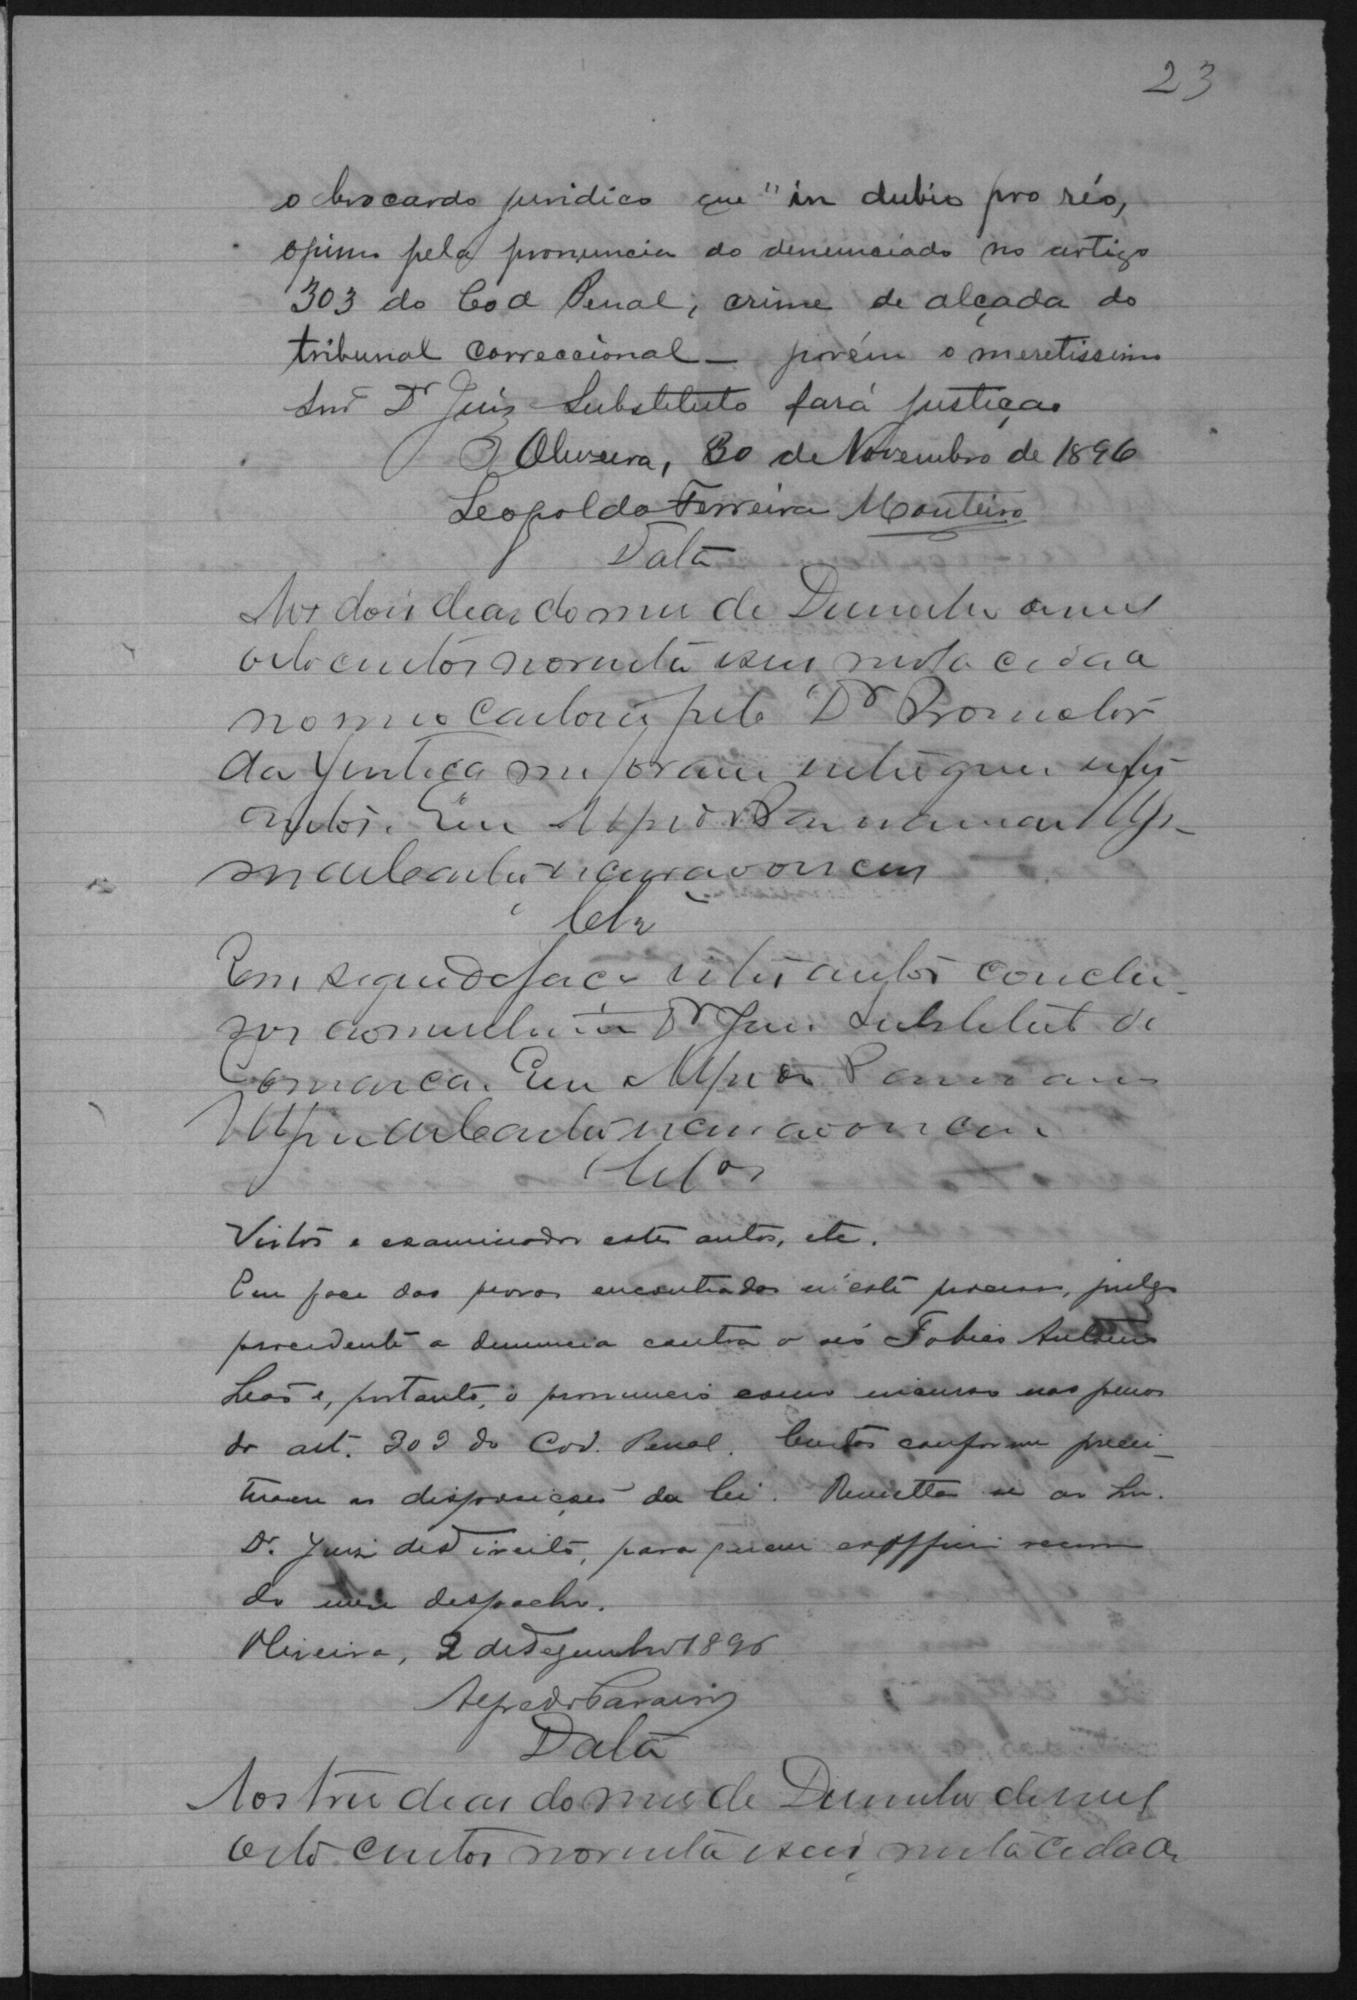 23
o brocardo juridico que "in dubio pro réo,
opino pela pronuncia do denunciado no artigo
303 do Cod Penal, crime de alçada do
tribunal correccional — porém o meretissimo
Snr Dr Juiz Substituto fará justiça
Oliveira, 30 de Novembro de 1896
Leopoldo Ferreira Monteiro
Data
Aos dois dias do mes de Dezembro de mil
oito centos noventa e seis nesta cidade
no meo Cartorio pelo Dr Promotor
da Justiça me foram entregues estes
autos. Eu
escrivão escrevi
Clz
Em seguida faço estes autos conclu-
sos ao Dr Juiz Substituto da
Comarca. Eu
escrivão escrevi
Clos
Vistos e examinados estes autos, etc.
Em face das provas encontradas n'este processo, julgo
procedente a denuncia contra o réo Tobias Antonio
Leão e, portanto, o pronuncio como incurso nas penas
do art. 303 do Cod. Penal. Custas conforme precei-
tuam as disposições da lei. Remetta-se ao Snr.
Dr. Juiz de Direito, para quem ex officio recorro
do meu despacho.
Oliveira, 2 de Dezembro 1896
Alfredo
Data
Aos tres dias do mes de Dezembro de mil
oito centos noventa e seis nesta cidade